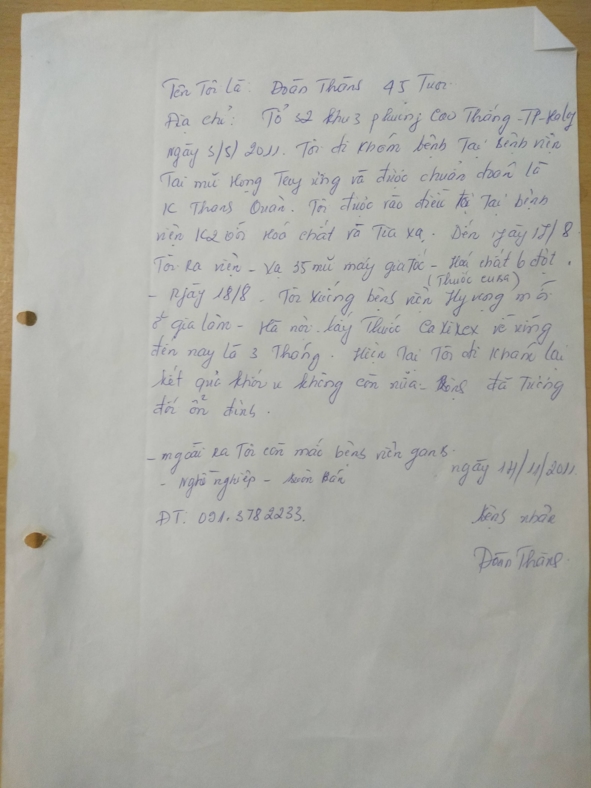 Tên Tôi Là: Đoàn Thăng 45 Tuổi.
Địa chỉ: Tổ 52 khu 3 phường Cao Thắng - TP - HaLg
Ngày 5/5/2011. Tôi đi khám bệnh Tại Bệnh viện
Tai mũi Họng Tuy và được chuẩn đoán là
K Thanh Quản. Tôi được vào điều Tại bệnh
viện K2 Hoá chất và Tia xạ. Đến ngày 17/8
Tôi Ra viện - Vạ 35 mũi máy gia tốc - Hoá chất 6 đợt.
(Thuốc cuba)
- Ngày 18/8. Tôi xuống bệnh viện Hy vọng mới
ở gia lâm - Hà nội. Lấy Thuốc về
đến nay là 3 Tháng. Hiện Tại Tôi đi Khám lại
kết quả khối u không còn nữa - Bệnh đã Tương
đối ổn định.
- Ngoài Ra Tôi còn mắc bệnh viên gan.
ngày 14/11/2011.
- Nghề nghiệp - Buôn Bán
ĐT: 091.3782233.
Bệnh nhân
Đoàn Thăng.